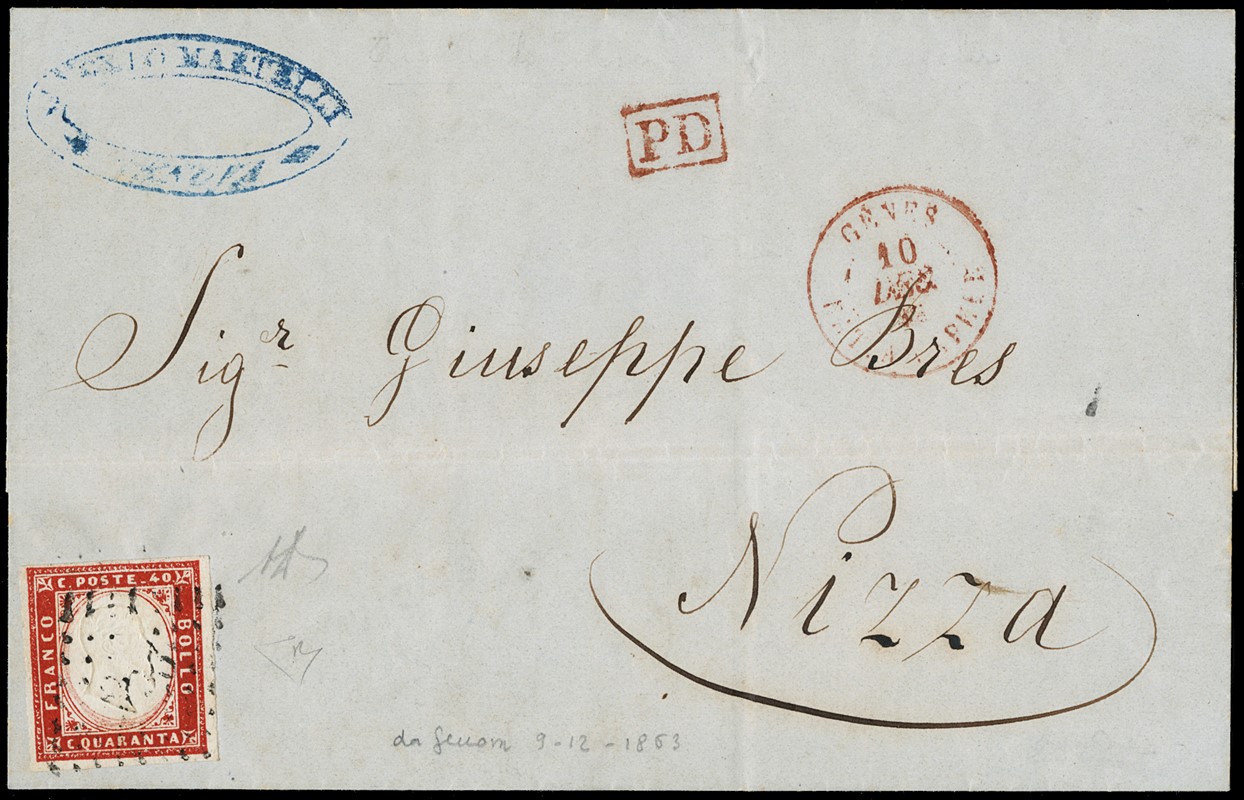 MARTELLI
PD
GÊNES
10
DEC
Sigr Giuseppe Bres
Nizza
C. POSTE. 40
FRANCO
BOLLO
C. QUARANTA
da Genova 9-12-1863